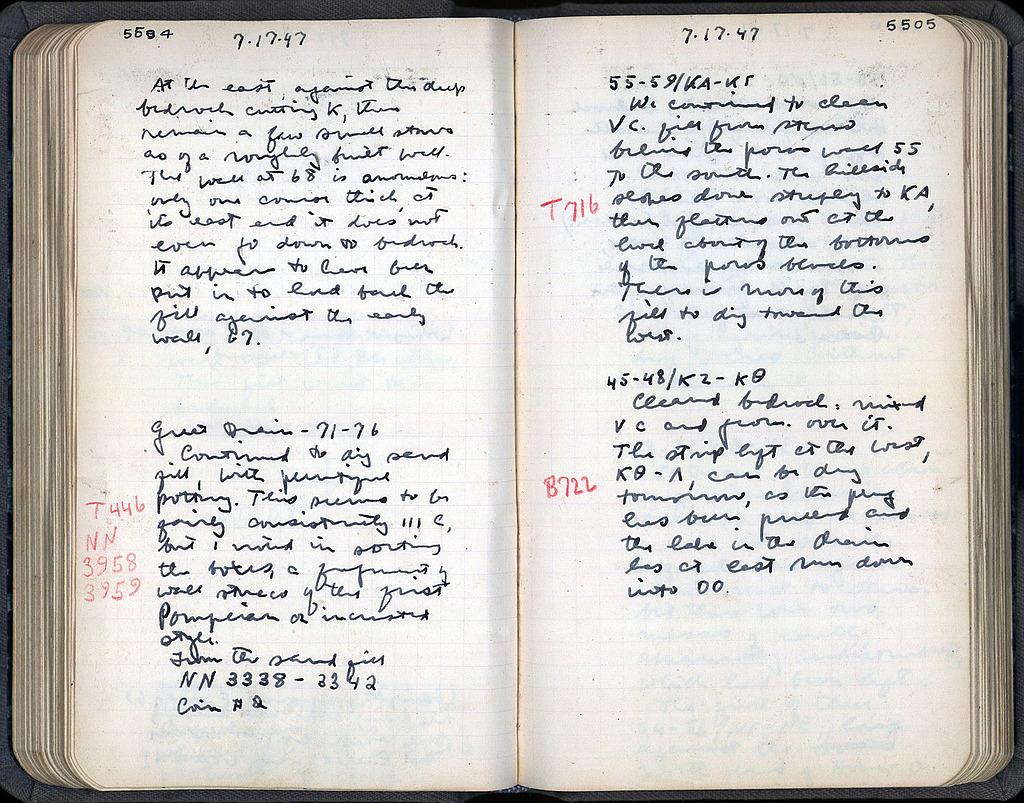 5594
7.17.47
At the east, against the deep
bedrock cutting K, there
remain a few small stones
as of a roughly built wall.
The wall at 68 is anomalous:
only one course thick, at
its east end it does not
even go down to bedrock.
It appears to have been
put in to hold back the
fill against the early
wall, 67.
Great Drain - 71-76
Continued to dig sand
fill, with plentiful
pottery. This seems to be
fairly consistently III C,
but I noted in sorting
the boxes, a fragment of
wall stucco of the first
Pompeian or incrusted
style.
From the sand fill
NN 3338 - 3342
Coin # 2
T 446
NN
3958
3959
5505
7.17.47
55-59/KA-KΓ
We continued to clean
V C. fill from stereo
behind the poros wall 55
to the south. The hillside
slopes down steeply to KA,
then flattens out at the
level about of the bottoms
of the poros blocks.
There is more of this
fill to dig toward the
west.
T 716
45-48/KZ - KΘ
Cleared bedrock: mixed
V C and from over it.
The strip left at the west,
KΘ - Λ, can be dug
tomorrow, as the
has been and
the lake in the drain
has at last run down
into OO.
B722